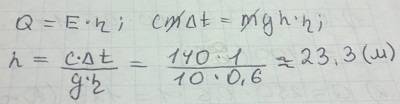 Q = E · η ; cm̸Δt = m̸gh · η ;
h = \frac{c·Δt}{g·η} = \frac{140 · 1}{10 · 0,6} ≈ 23,3 (м)